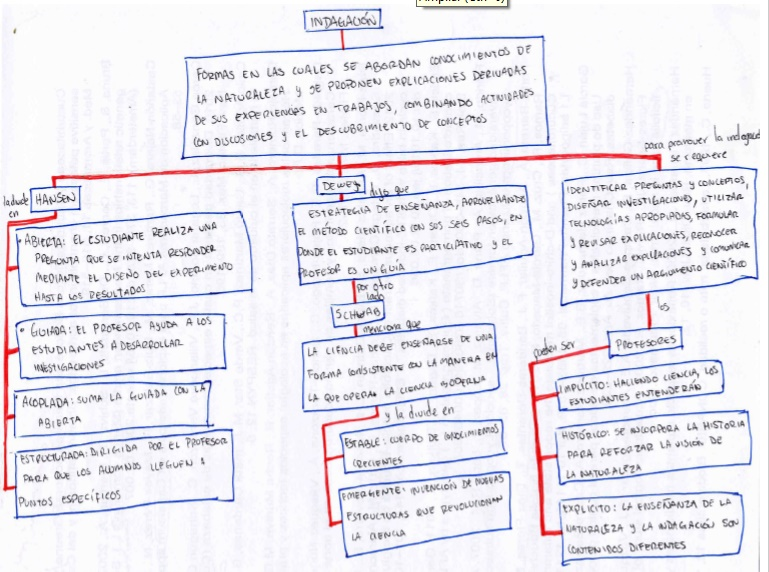 INDAGACIÓN
FORMAS EN LAS CUALES SE ABORDAN CONOCIMIENTOS DE
LA NATURALEZA Y SE PROPONEN EXPLICACIONES DERIVADAS
DE SUS EXPERIENCIAS EN TRABAJOS, COMBINANDO ACTIVIDADES
CON DISCUSIONES Y EL DESCUBRIMIENTO DE CONCEPTOS
la divide
en
HANSEN
• ABIERTA: EL ESTUDIANTE REALIZA UNA
PREGUNTA QUE SE INTENTA RESPONDER
MEDIANTE EL DISEÑO DEL EXPERIMENTO
HASTA LOS RESULTADOS
• GUIADA: EL PROFESOR AYUDA A LOS
ESTUDIANTES A DESARROLLAR
INVESTIGACIONES
ACOPLADA: SUMA LA GUIADA CON LA
ABIERTA
ESTRUCTURADA: DIRIGIDA POR EL PROFESOR
PARA QUE LOS ALUMNOS LLEGUEN A
PUNTOS ESPECÍFICOS
DEWEY
dijo que
ESTRATEGIA DE ENSEÑANZA, APROVECHANDO
EL MÉTODO CIENTÍFICO CON SUS SEIS PASOS, EN
DONDE EL ESTUDIANTE ES PARTICIPATIVO Y EL
PROFESOR ES UN GUÍA
por otro
lado
SCHWAB
menciona que
LA CIENCIA DEBE ENSEÑARSE DE UNA
FORMA CONSISTENTE CON LA MANERA EN
LA QUE OPERA LA CIENCIA MODERNA
y la divide en
ESTABLE: CUERPO DE CONOCIMIENTOS
CRECIENTES
EMERGENTE: INVENCIÓN DE NUEVAS
ESTRUCTURAS QUE REVOLUCIONAN
LA CIENCIA
para promover la indagación
se requiere
IDENTIFICAR PREGUNTAS Y CONCEPTOS,
DISEÑAR INVESTIGACIONES, UTILIZAR
TECNOLOGÍAS APROPIADAS, FORMULAR
Y REVISAR EXPLICACIONES, RECONOCER
Y ANALIZAR EXPLICACIONES Y COMUNICAR
Y DEFENDER UN ARGUMENTO CIENTÍFICO
los
PROFESORES
pueden ser
IMPLÍCITO: HACIENDO CIENCIA, LOS
ESTUDIANTES ENTENDERÁN
HISTÓRICO: SE INCORPORA LA HISTORIA
PARA REFORZAR LA VISIÓN DE
LA NATURALEZA
EXPLÍCITO: LA ENSEÑANZA DE LA
NATURALEZA Y LA INDAGACIÓN SON
CONTENIDOS DIFERENTES